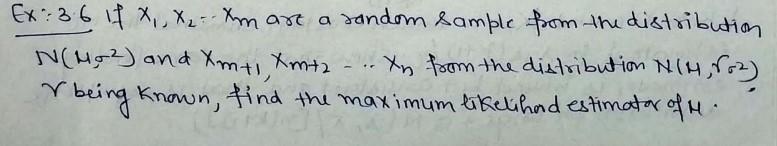 Ex:- 3.6 If X₁, X₂ -- Xm are a random sample from the distribution
N(μ,σ²) and Xm+1, Xm+2 - .. Xn from the distribution N(μ, rσ²)
r being known, find the maximum likelihod estimator of μ.